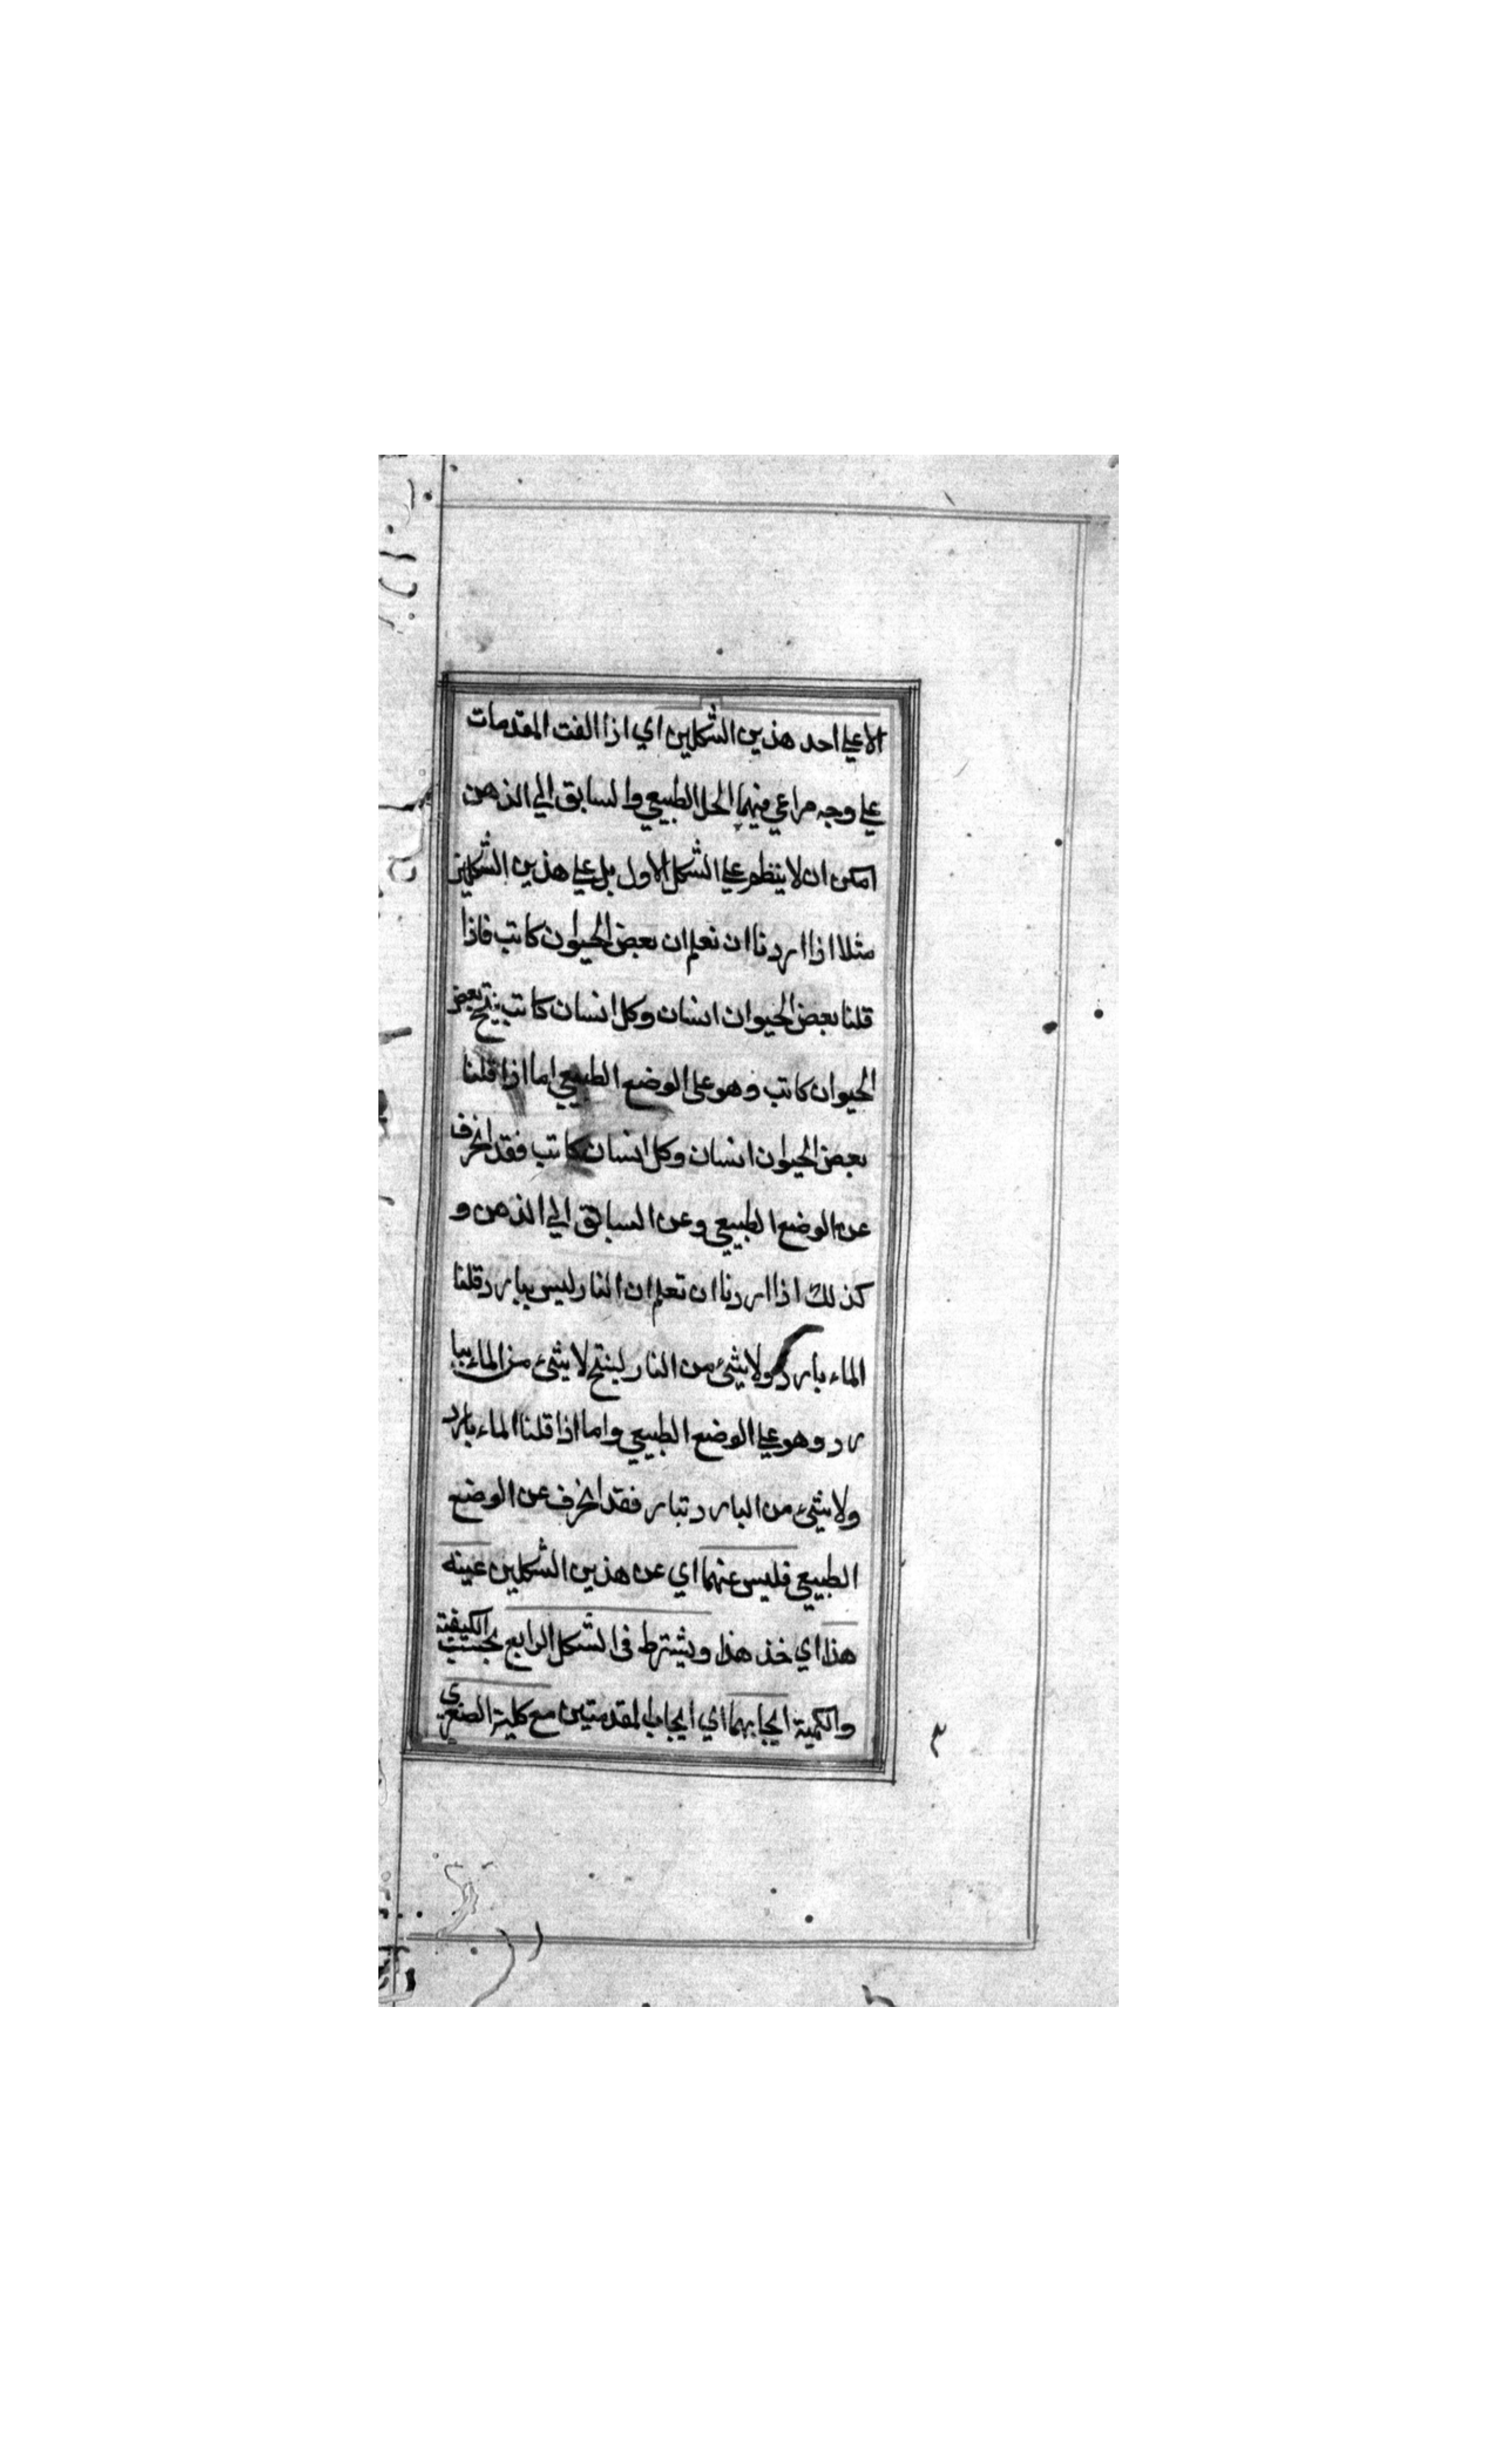 الا علي احد هذين الشكلين اي اذا الفت المقدمات
علي وجه مراعي فيهما الحل الطبيعي والسابق الي الذهن
امكن ان لا ينظم علي الشكل الاول بل علي هذين الشكلين
مثلا اذا اردنا ان نعلم ان بعض الحيوان كاتب فاذا
قلنا بعض الحيوان انسان وكل انسان كاتب ينتج بعض
الحيوان كاتب وهو علي الوضع الطبيعي اما اذا قلنا
بعض الحيوان انسان وكل انسان كاتب فقد انحرف
عن الوضع الطبيعي وعن السابق الي الذهن و
كذلك اذا اردنا ان تعلم ان النار ليس ببارد قلنا
الماء بارد ولا شئ من النار لينتج لا شئ من الماء ببا
رد وهو علي الوضع الطبيعي واما اذا قلنا الماء بارد
ولا شئ من البارد تبار فقد انحرف عن الوضع
الطبيعي فليس عنهما اي عن هذين الشكلين عينه
هذا اي خذ هذا ويشترط في الشكل الرابع بحسب الكيفية
والكمية ايجابهما اي ايجاب المقدمتين مع كلية الصغري
٣